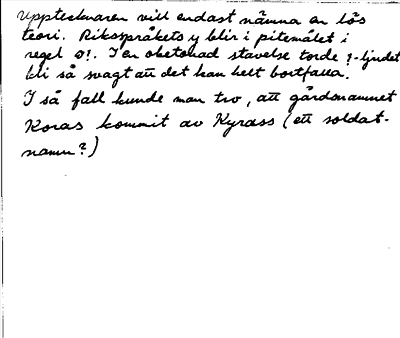 Upptecknaren vill endast nämna en lös
teori. Rikospråkets y blir i pitemålet i
regel o?. I en obetonad stavelse torde ?-ljudet
bli så svagt att det kan helt bortfalla.
I så fall kunde man tro, att gårdsnamnet
Koras kommit av Kyrass (ett soldat-
namn?)